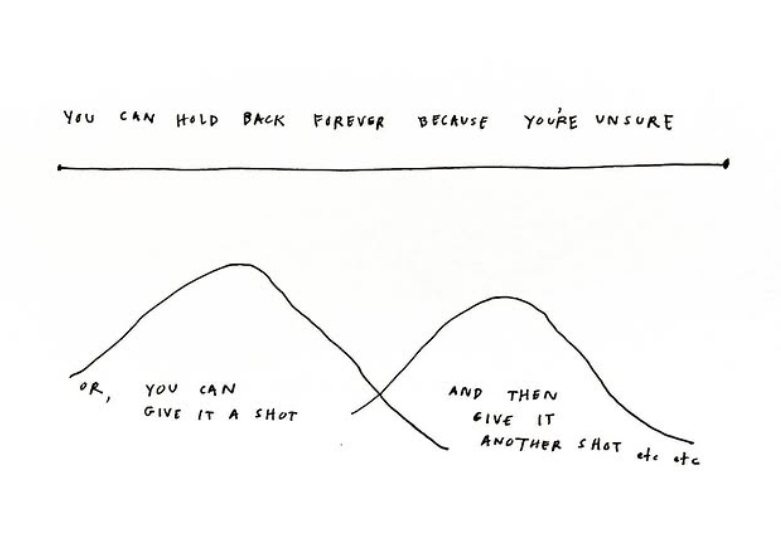 YOU CAN HOLD BACK FOREVER BECAUSE YOU'RE UNSURE
OR, YOU CAN
GIVE IT A SHOT
AND THEN
GIVE IT
ANOTHER SHOT etc etc